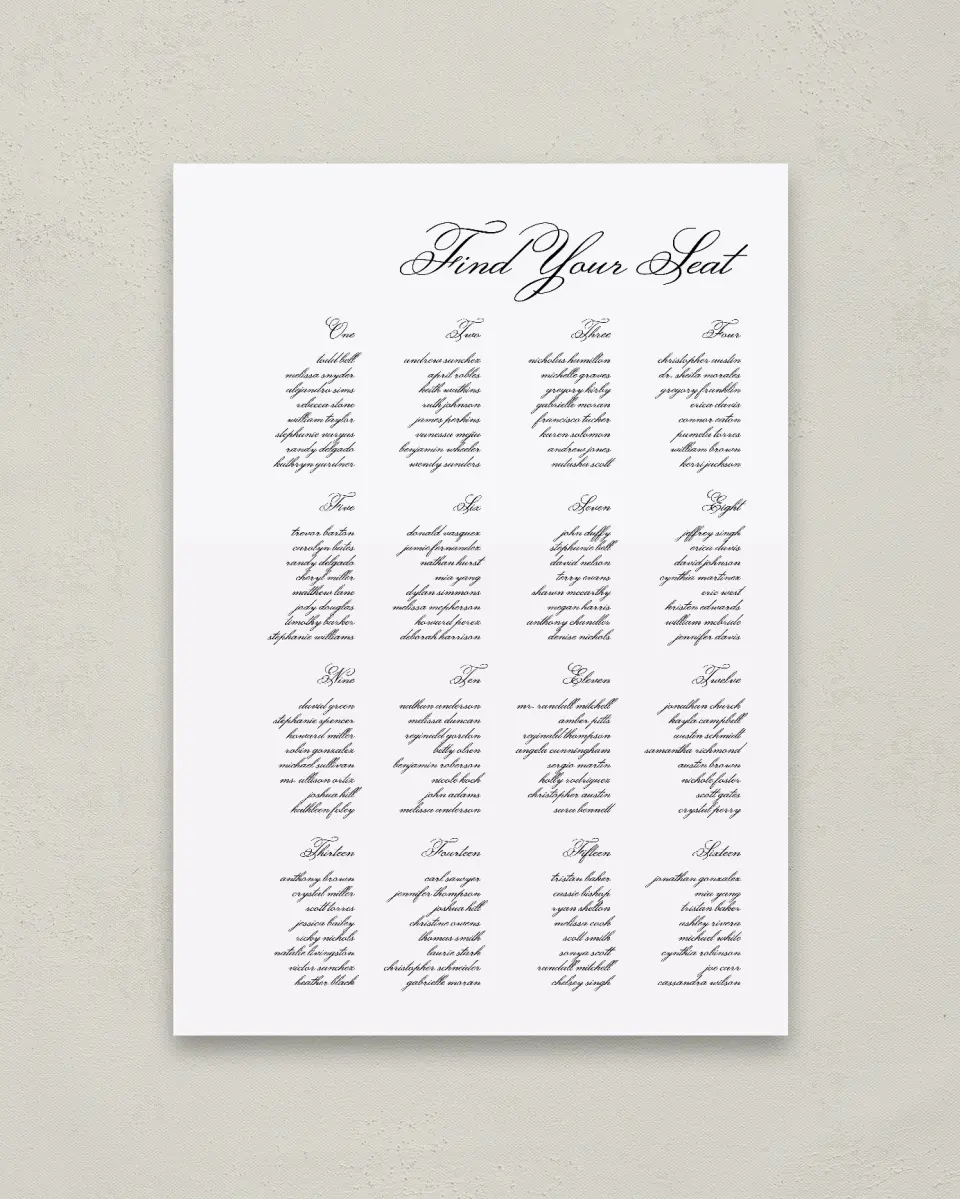 Find Your Seat
One
todd bell
melissa snyder
alejandro sims
rebecca stone
william taylor
stephanie vargas
randy delgado
kathryn gardner
Two
andrew sanchez
april robles
keith watkins
ruth johnson
james perkins
vanessa mejia
benjamin wheeler
wendy sanders
Three
nicholas hamilton
michelle graves
gregory kirby
gabrielle moran
francisco tucker
karen solomon
andrew jones
natasha scott
Four
christopher austin
dr. sheila morales
gregory franklin
erica davis
connor eaton
pamela torres
william brown
kerri jackson
Five
trevor barton
carolyn bates
randy delgado
cheryl miller
matthew lane
jody douglas
timothy barker
stephanie williams
Six
donald vasquez
jamie fernandez
nathan hurst
mia yang
dylan simmons
melissa mcpherson
howard perez
deborah harrison
Seven
john duffy
stephanie bell
david nelson
terry evans
shawn mccarthy
megan harris
anthony chandler
denise nichols
Eight
jeffrey singh
erica davis
david johnson
cynthia martinez
eric west
kristen edwards
william mcbride
jennifer davis
Nine
david green
stephanie spencer
howard miller
robin gonzalez
michael sullivan
ms. allison ortiz
joshua hill
kathleen foley
Ten
nathan anderson
melissa duncan
reginald gordon
betty olsen
benjamin roberson
nicole koch
john adams
melissa anderson
Eleven
mr. randall mitchell
amber pitts
reginald thompson
angela cunningham
sergio martin
holly rodriguez
christopher austin
sara bennett
Twelve
jonathan church
kayla campbell
austin schmidt
samantha richmond
austin brown
nichole foster
scott gates
crystal perry
Thirteen
anthony brown
crystal miller
scott torres
jessica bailey
ricky nichols
natalie livingston
victor sanchez
heather black
Fourteen
carl sawyer
jennifer thompson
joshua hill
christine owens
thomas smith
laurie stark
christopher schneider
gabrielle moran
Fifteen
tristan baker
cassie bishop
ryan shelton
melissa cook
scott smith
sonya scott
randall mitchell
chelsey singh
Sixteen
jonathan gonzalez
mia yang
tristan baker
ashley rivera
michael white
cynthia robinson
joe carr
cassandra wilson